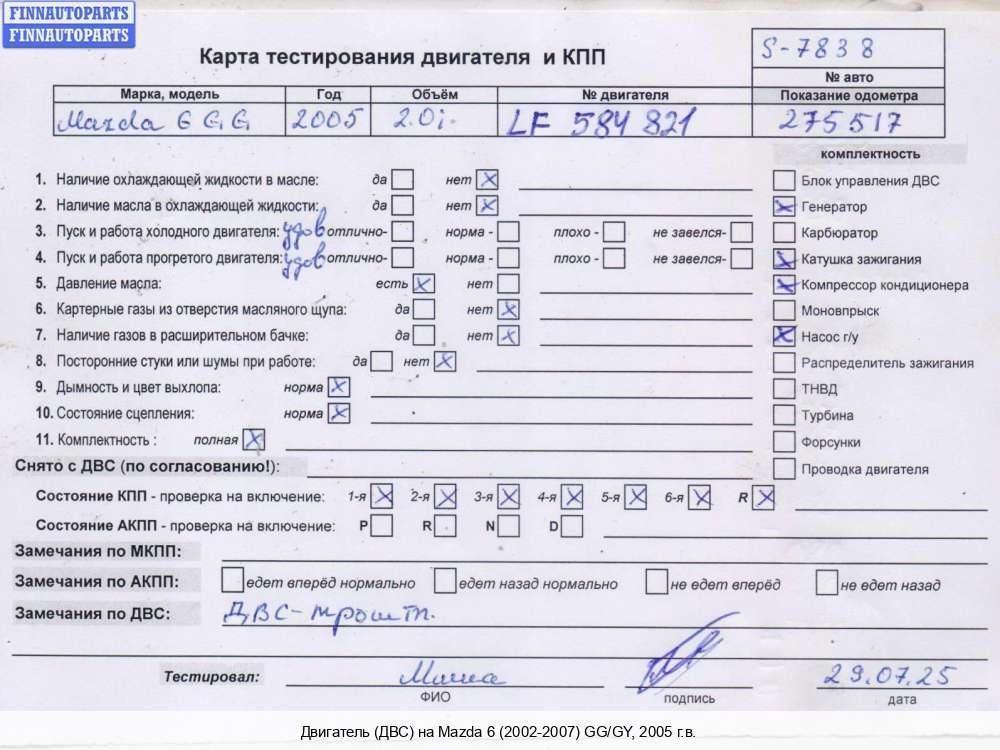 FINNAUTOPARTS
FINNAUTOPARTS
Карта тестирования двигателя и КПП
S-7838
№ авто
Марка, модель Год Объём № двигателя Показание одометра
Mazda 6 GG 2005 2.0i LF 584 821 275517
комплектность
1. Наличие охлаждающей жидкости в масле: да нет X
Блок управления ДВС
2. Наличие масла в охлаждающей жидкости: да нет X
X Генератор
3. Пуск и работа холодного двигателя: удов отлично- норма - плохо - не завелся-
Карбюратор
4. Пуск и работа прогретого двигателя: удов отлично- норма - плохо - не завелся-
X Катушка зажигания
5. Давление масла: есть X нет
X Компрессор кондиционера
6. Картерные газы из отверстия масляного щупа: да нет X
Моновпрыск
7. Наличие газов в расширительном бачке: да нет X
X Насос г/у
8. Посторонние стуки или шумы при работе: да нет X
Распределитель зажигания
9. Дымность и цвет выхлопа: норма X
ТНВД
10. Состояние сцепления: норма X
Турбина
11. Комплектность : полная X
Форсунки
Снято с ДВС (по согласованию!):
Проводка двигателя
Состояние КПП - проверка на включение: 1-я X 2-я X 3-я X 4-я X 5-я X 6-я X R X
Состояние АКПП - проверка на включение: P R N D
Замечания по МКПП:
Замечания по АКПП: едет вперёд нормально едет назад нормально не едет вперёд не едет назад
Замечания по ДВС: ДВС-троит.
Тестировал: 29.07.25
ФИО подпись дата
Двигатель (ДВС) на Mazda 6 (2002-2007) GG/GY, 2005 г.в.